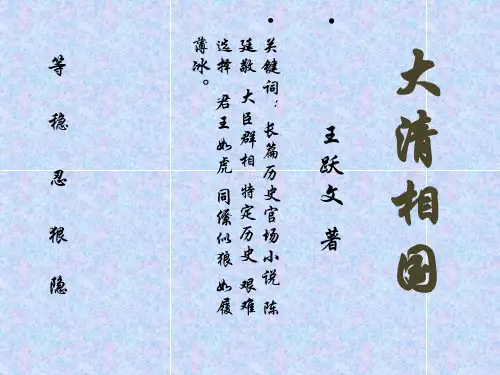 大清相国
• 王跃文 著
• 关键词：长篇历史官场小说 陈
廷敬 大臣群相 特定历史 艰难
选择 君王如虎 同僚似狼 如履
薄冰。
等 稳 忍 狠 隐